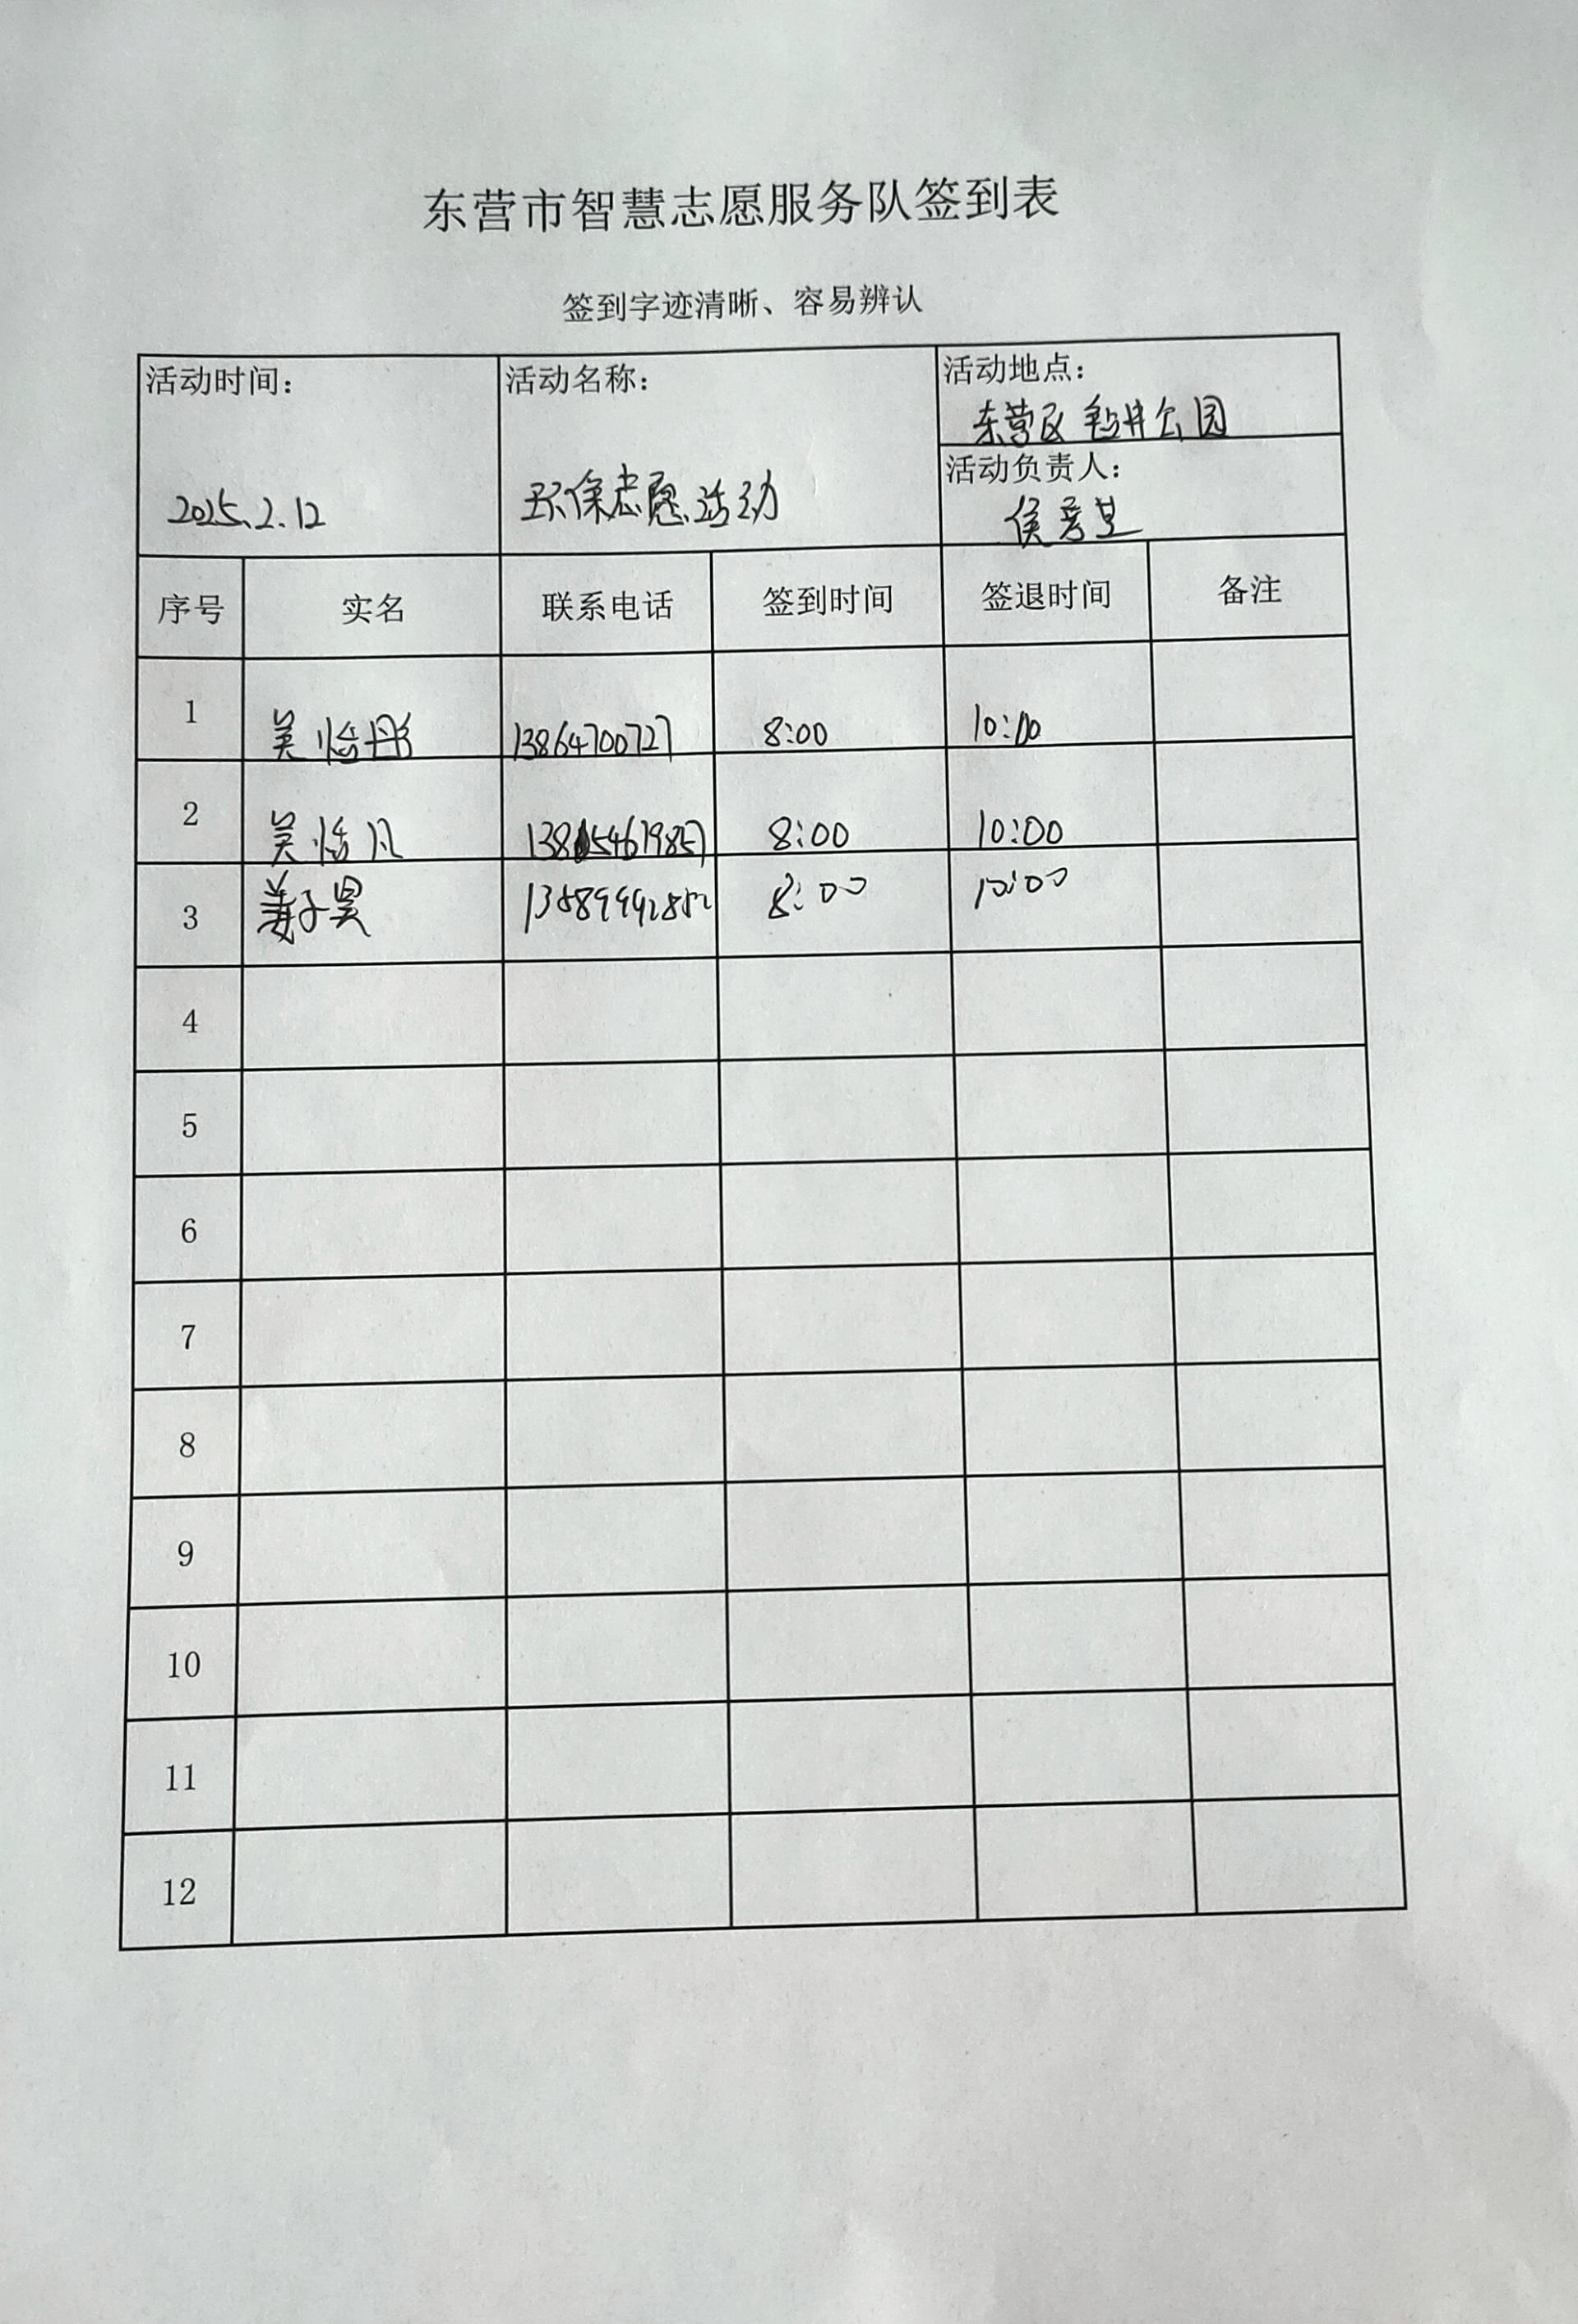 东营市智慧志愿服务队签到表
签到字迹清晰、容易辨认
活动时间：
2025.2.12
活动名称：
环保志愿活动
活动地点：
东营区 钻井公园
活动负责人：
侯
序号 实名 联系电话 签到时间 签退时间 备注
1 吴怡彤 13864700727 8:00 10:00
2 吴恰凡 8:00 10:00
3 姜子昊 13589992852 8:00 10:00
4
5
6
7
8
9
10
11
12